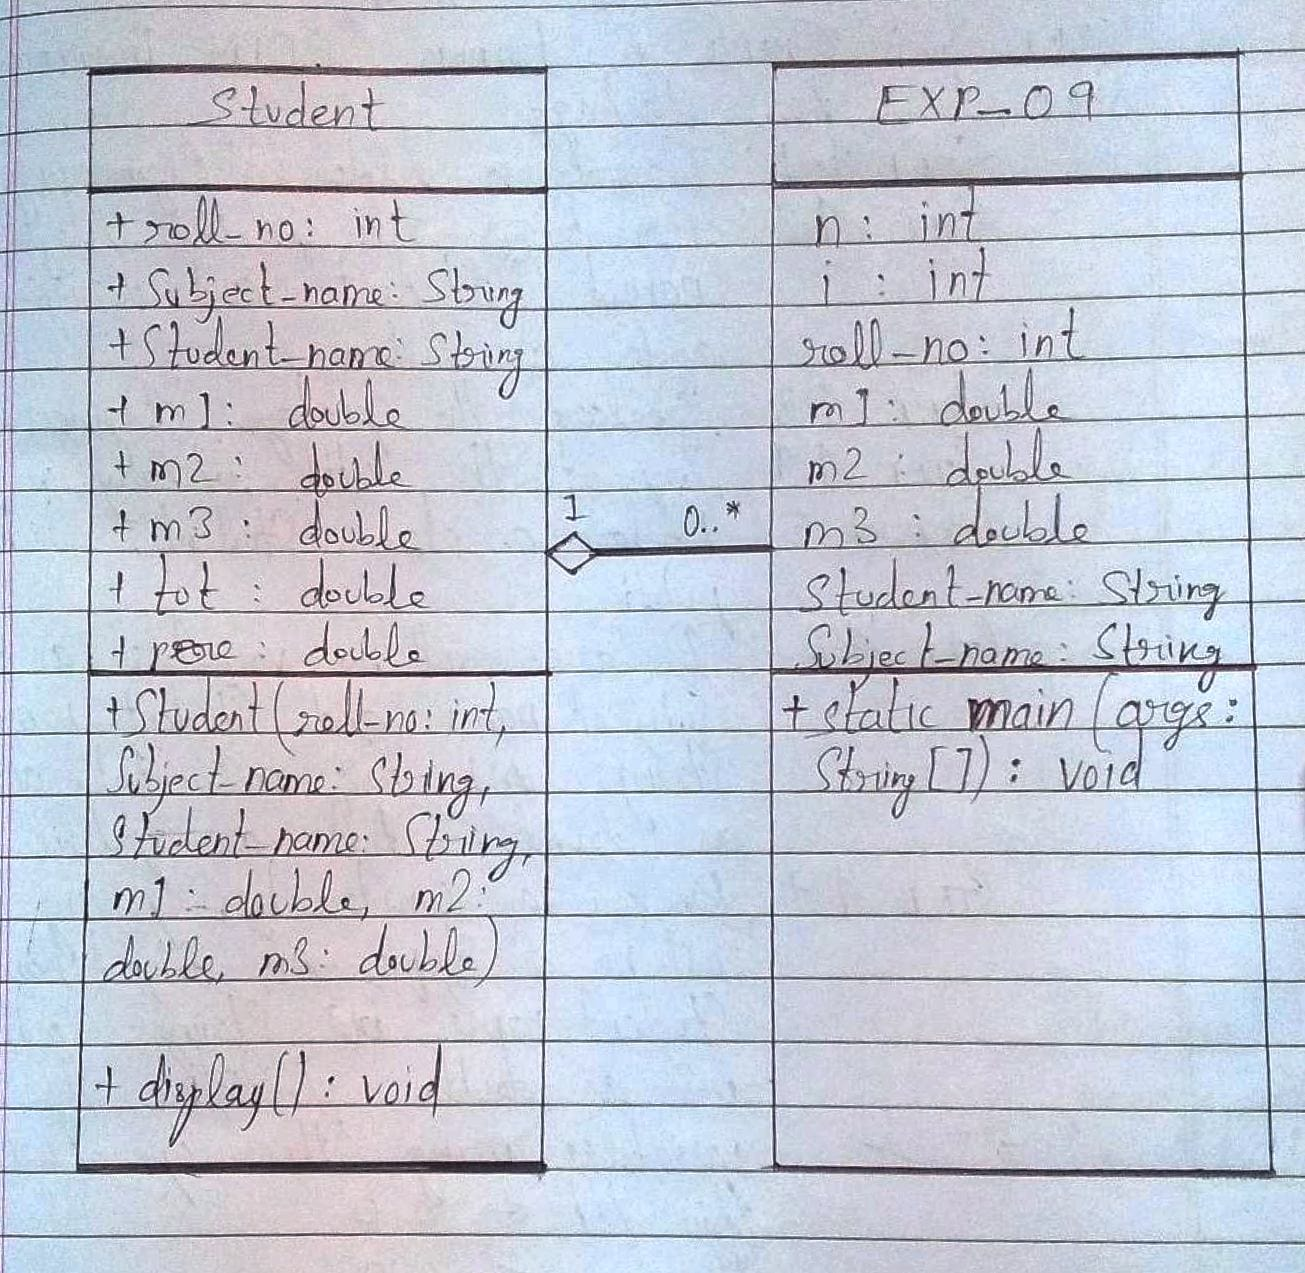 Student
+ roll_no: int
+ Subject_name: String
+ Student_name: String
+ m1: double
+ m2: double
+ m3: double
+ tot: double
+ : double
+ Student(roll-no: int,
Subject_name: String,
Student_name: String,
m1: double, m2:
double, m3: double)
+ display(): void
1
0..*
EXP_09
n: int
i: int
roll_no: int
m1: double
m2: double
m3: double
Student_name: String
Subject_name: String
+ static main (args:
String[]): void